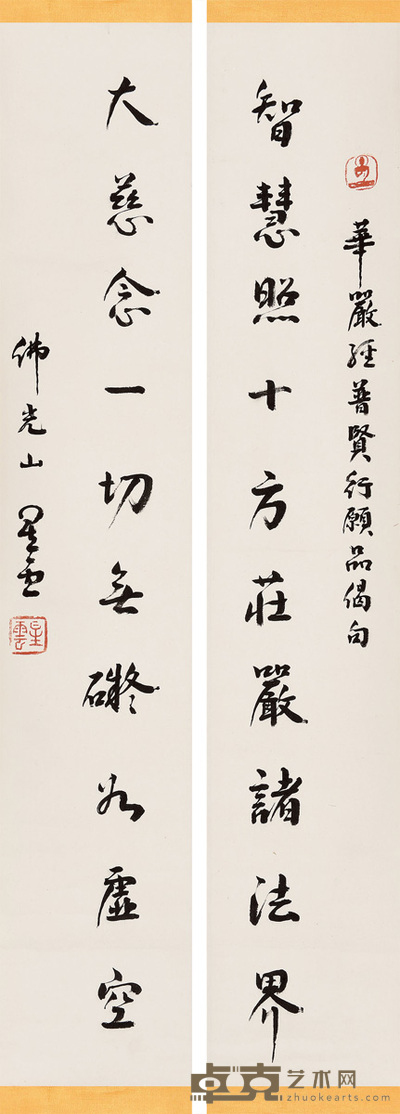 華嚴經普賢行願品偈句
智慧照十方莊嚴諸法界
大慈念一切無礙如虛空
佛光山 星雲
星雲
卓克艺术网
www.zhuokearts.com